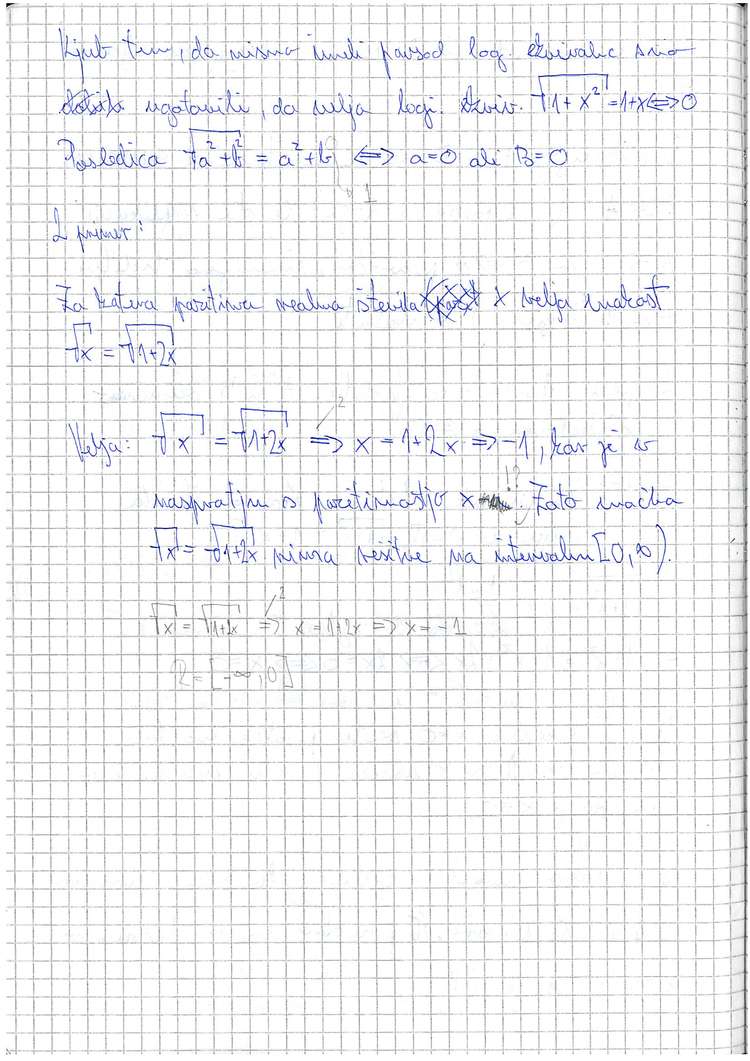 Kljub tem, da nismo imeli povsod log. ekvivalic smo
ugotovili, da velja logi. ekviv. √1+x² = 1+x ⟺ 0
Posledica √a²+b² = a²+b ⟺ a=0 ali B=0
1
2 primer:
Za katera pozitivna realna števila x velja enakost
√x = √1+2x
2
Velja: √x = √1+2x ⟹ x = 1+2x ⟹ -1, kar je v
!?
nasprotju s pozitivnostjo x. Zato enačba
√x = √1+2x nima rešitve na intervalu [0,∞).
2
√x = √1+2x ⟹ x=1+2x ⟹ x=-1
R=[-∞,0]